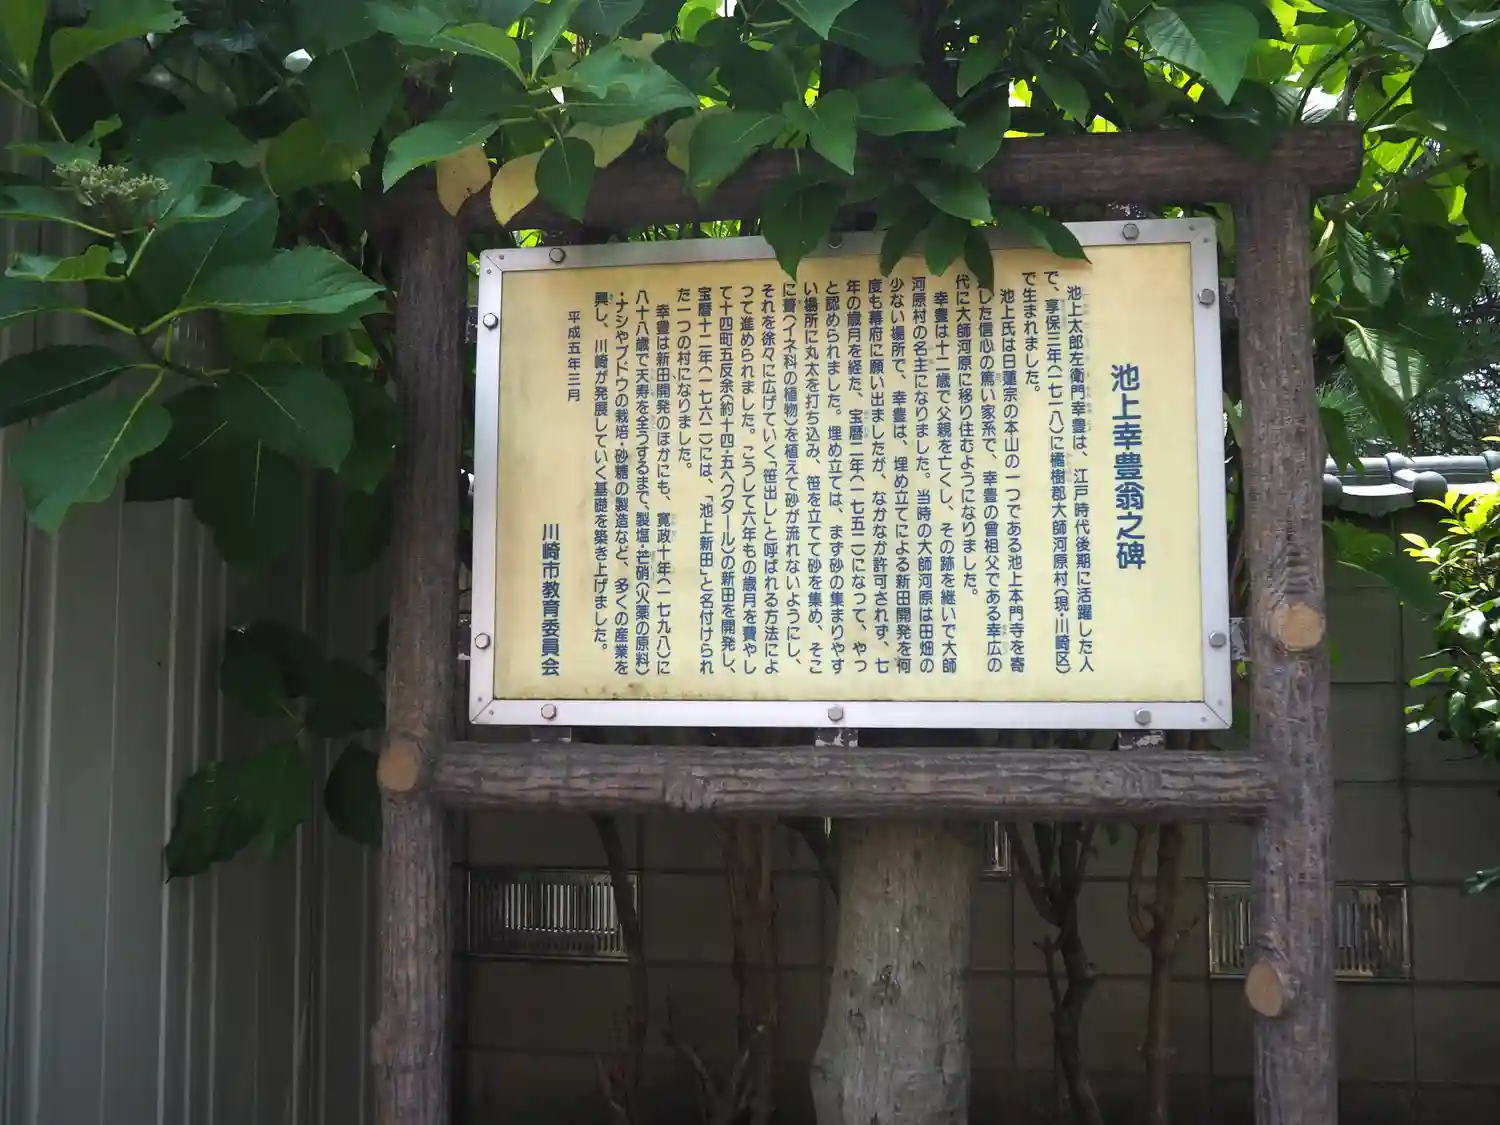 池上幸豊翁之碑
池上太郎左衛門幸豊は、江戸時代後期に活躍した人
で、享保三年(一七一八)に橘樹郡大師河原村(現・川崎区)
で生まれました。
池上氏は日蓮宗の本山の一つである池上本門寺を寄
した信心の篤い家系で、幸豊の曾祖父である幸広の
代に大師河原に移り住むようになりました。
幸豊は十二歳で父親を亡くし、その跡を継いで大師
河原村の名主になりました。当時の大師河原は田畑の
少ない場所で、幸豊は、埋め立てによる新田開発を何
度も幕府に願い出ましたが、なかなか許可されず、七
年の歳月を経た、宝暦二年(一七五二)になって、やっ
と認められました。埋め立ては、まず砂の集まりやす
い場所に丸太を打ち込み、笹を立てて砂を集め、そこ
に葭(イネ科の植物)を植えて砂が流れないようにし、
それを徐々に広げていく「笹出し」と呼ばれる方法によ
って進められました。こうして六年もの歳月を費やし
て十四町五反余(約十四・五ヘクタール)の新田を開発し、
宝暦十二年(一七六二)には、「池上新田」と名付けられ
た一つの村になりました。
幸豊は新田開発のほかにも、寛政十年(一七九八)に
八十八歳で天寿を全うするまで、製塩・芒硝(火薬の原料)
・ナシやブドウの栽培・砂糖の製造など、多くの産業を
興し、川崎が発展していく基礎を築き上げました。
平成五年三月
川崎市教育委員会